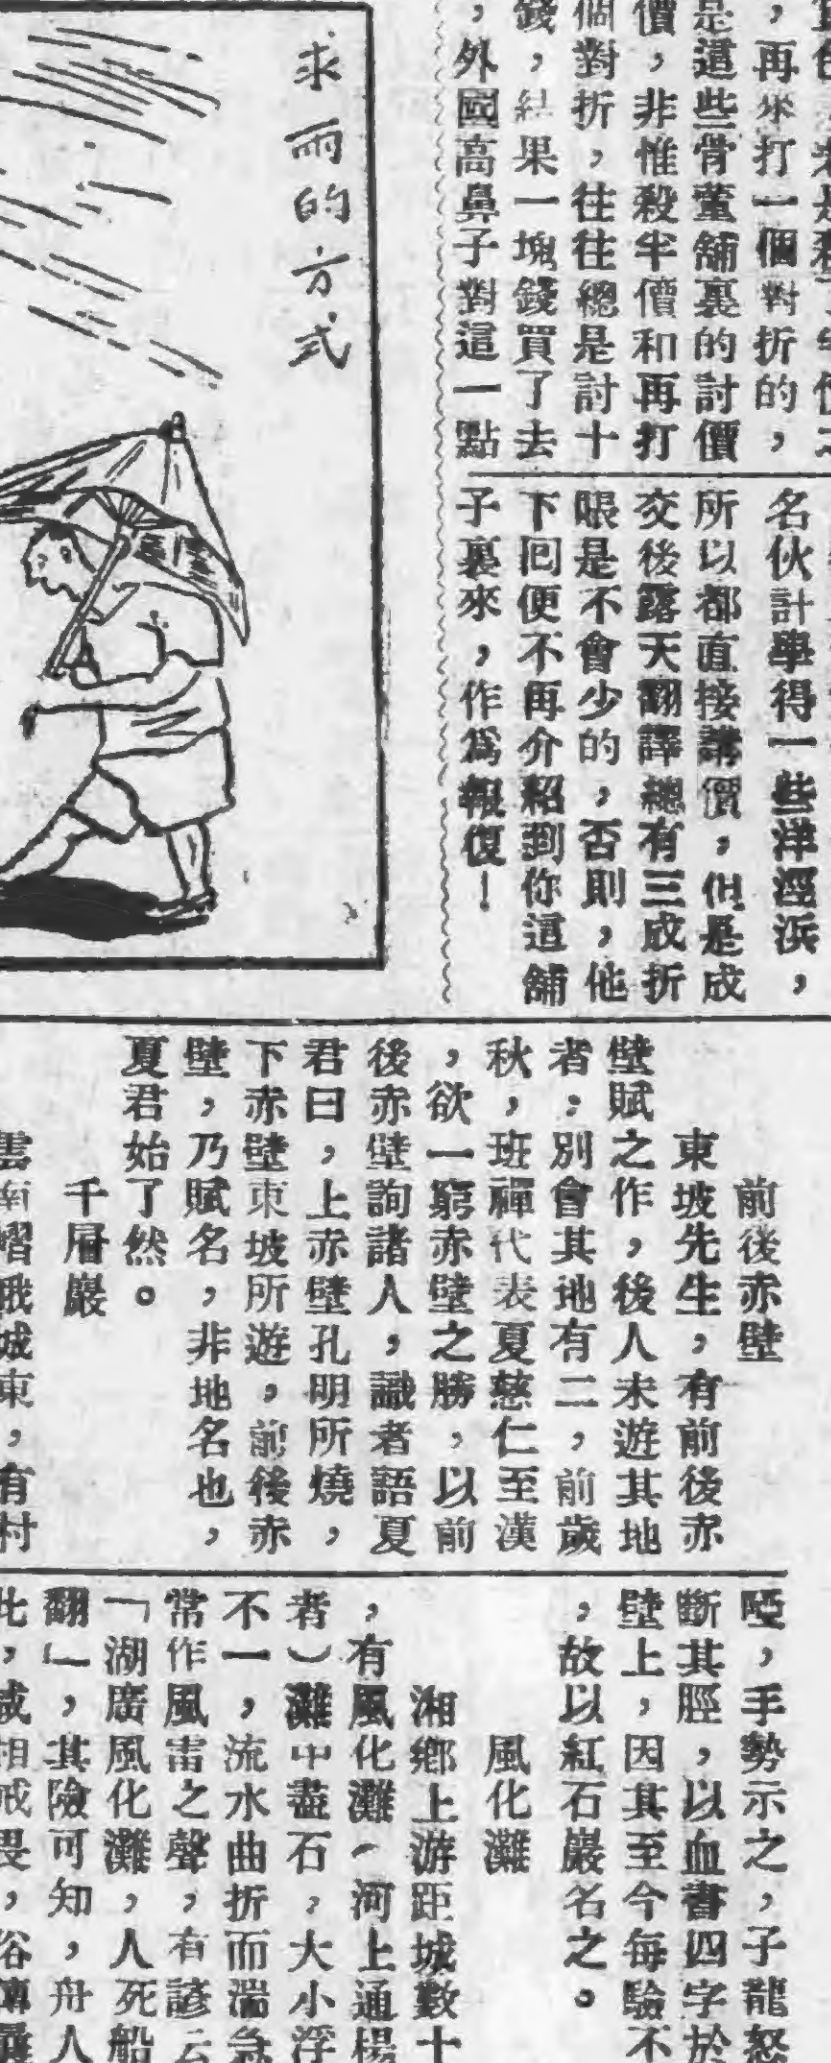 是這些骨董舖裏的討價
價，非惟殺半價和再打
個對折，往往總是討十
錢，結果一塊錢買了去
，外國高鼻子對這一點
，再來打一個對折的，
名伙計學得一些洋涇浜，
所以都直接講價，但是成
交後露天翻譯總有三成折
賬是不會少的，否則，他
下回便不再介紹到你這舖
子裏來，作爲報復！
求雨的方式
前後赤壁
東坡先生，有前後赤
壁賦之作，後人未遊其地
者，別會其地有二，前歲
秋，班禪代表夏慈仁至漢
，欲一窮赤壁之勝，以前
後赤壁詢諸人，識者語夏
君曰，上赤壁孔明所燒，
下赤壁東坡所遊，前後赤
壁，乃賦名，非地名也，
夏君始了然。
千層巖
雲南嶍峨城東，有村
啞，手勢示之，子龍怒
斷其脛，以血書四字於
壁上，因其至今每驗不
，故以紅石巖名之。
風化灘
湘鄉上游距城數十
，有風化灘（河上通楊
者）灘中盡石，大小浮
不一，流水曲折而湍急
常作風雷之聲，有諺云
「湖廣風化灘，人死船
翻」，其險可知，舟人
此，咸相戒畏，俗傳